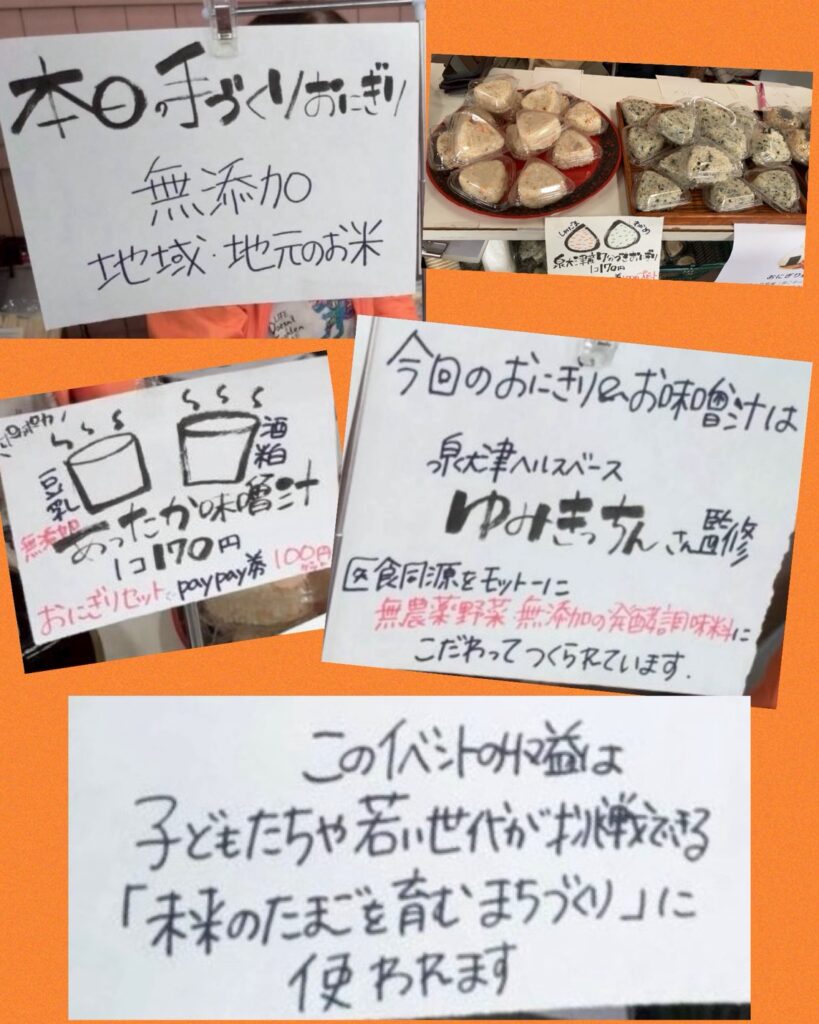 本日の手づくりおにぎり
無添加
地域・地元のお米
しゃけ
わかめ
泉大津産7分づきおにぎり
1コ170円
おにぎり
ポカポカ
豆乳
酒粕
無添加
あったか味噌汁
1コ170円
おにぎりセットで paypay券 100円
今回のおにぎり&お味噌汁は
泉大津ヘルスベース
ゆみきっちんさん監修
医食同源をモットーに
無農薬野菜・無添加の発酵調味料に
こだわってつくられています.
このイベントの収益は
子どもたちや若い世代が挑戦できる
「未来のたまごを育むまちづくり」に
使われます